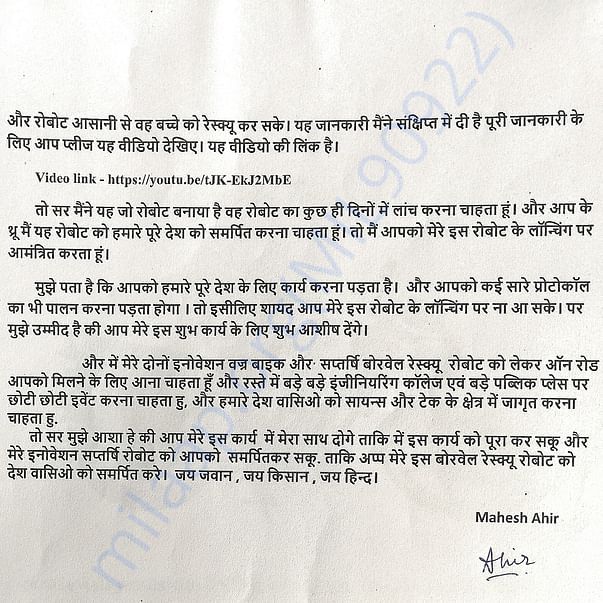 और रोबोट आसानी से वह बच्चे को रेस्क्यू कर सके। यह जानकारी मैंने संक्षिप्त में दी है पूरी जानकारी के
लिए आप प्लीज यह वीडियो देखिए। यह वीडियो की लिंक है।
Video link - https://youtu.be/tJK-EkJ2MbE
तो सर मैंने यह जो रोबोट बनाया है वह रोबोट का कुछ ही दिनों में लांच करना चाहता हूं। और आप के
थ्रू मैं यह रोबोट को हमारे पूरे देश को समर्पित करना चाहता हूं। तो मैं आपको मेरे इस रोबोट के लॉन्चिंग पर
आमंत्रित करता हूं।
मुझे पता है कि आपको हमारे पूरे देश के लिए कार्य करना पड़ता है। और आपको कई सारे प्रोटोकॉल
का भी पालन करना पड़ता होगा । तो इसीलिए शायद आप मेरे इस रोबोट के लॉन्चिंग पर ना आ सके। पर
मुझे उम्मीद है की आप मेरे इस शुभ कार्य के लिए शुभ आशीष देंगे।
और में मेरे दोनों इनोवेशन वज्र बाइक और सप्तर्षि बोरवेल रेस्क्यू रोबोट को लेकर ऑन रोड
आपको मिलने के लिए आना चाहता हूँ और रस्ते में बड़े बड़े इंजीनियरिंग कॉलेज एवं बड़े पब्लिक प्लेस पर
छोटी छोटी इवेंट करना चाहता हु, और हमारे देश वासिओ को सायन्स और टेक के क्षेत्र में जागृत करना
चाहता हु.
तो सर मुझे आशा हे की आप मेरे इस कार्य में मेरा साथ दोगे ताकि में इस कार्य को पूरा कर सकू और
मेरे इनोवेशन सप्तर्षि रोबोट को आपको समर्पितकर सकू. ताकि अप्प मेरे इस बोरवेल रेस्क्यू रोबोट को
देश वासिओ को समर्पित करे। जय जवान , जय किसान , जय हिन्द।
Mahesh Ahir
Ahir